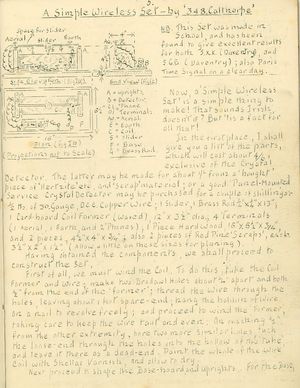 5.
A Simple Wireless Set - by '348 Calthorpe'
Space for Slider
Aerial Slider Earth
Side Elevation (Fig I)
End View (Fig II)
A = Uprights
B = Detector
T = Terminals
A = Aerial
E = Earth
C = Coil
S = Slider
F = Base
R = Brass Rod
10"
Plan (Fig III)
(Projections not to Scale)
NB This Set was made in
School, and has been
found to give excellent results
for both 5.X.X. (Daventry), and
5GB (Daventry); also Paris
Time Signal on a clear day.
Now, a 'Simple Wireless
Set' is a simple thing to
make! That sounds Irish,
doesn't it? But 'tis a fact for
all that!
In the first place, I shall
give you a list of the parts,
which will cost about
exclusive of the Crystal
Detector. The latter may be made for about 4d from a 'bought'
piece of 'Hertzite' etc. and 'scrap' material; or a good 'Panel-Mounted
Service Crystal Detector' may be purchased for a couple of shillings.
½ lb of 24 Gauge, D.C.C. Copper Wire; 1 Slider, 1 Brass Rod
1 Cardboard Coil Former (Waxed), 12" x 3½" dia; 4 Terminals
(1 Aerial, 1 Earth, and 2 'Phones), 1 Piece Hardwood
and 2 pieces, also 2 pieces of Red Pine 'Scraps', each
(allow a little on these sizes for planing).
Having obtained the components, we shall proceed to
construct the Set.
First of all, we must wind the Coil. To do this, take the Coil
Former and wire; make two Bradawl Holes about ¼" apart and both
½" from the end of the 'former'; thread the wire through the
holes, leaving about 1 foot spare-end; hang the bobbin of wire
on a nail to revolve freely; and proceed to wind the former,
taking care to keep the wire taut and even. On reaching ½"
from the other extremity, bore two more similar holes, tuck
the loose end through the holes into the hollow of the tube,
and leave it there as a 'dead-end'. Paint the whole of the wire
Coil with Shellac Varnish, and allow to dry.
Next proceed to shape the Base-board and uprights. For the Base,